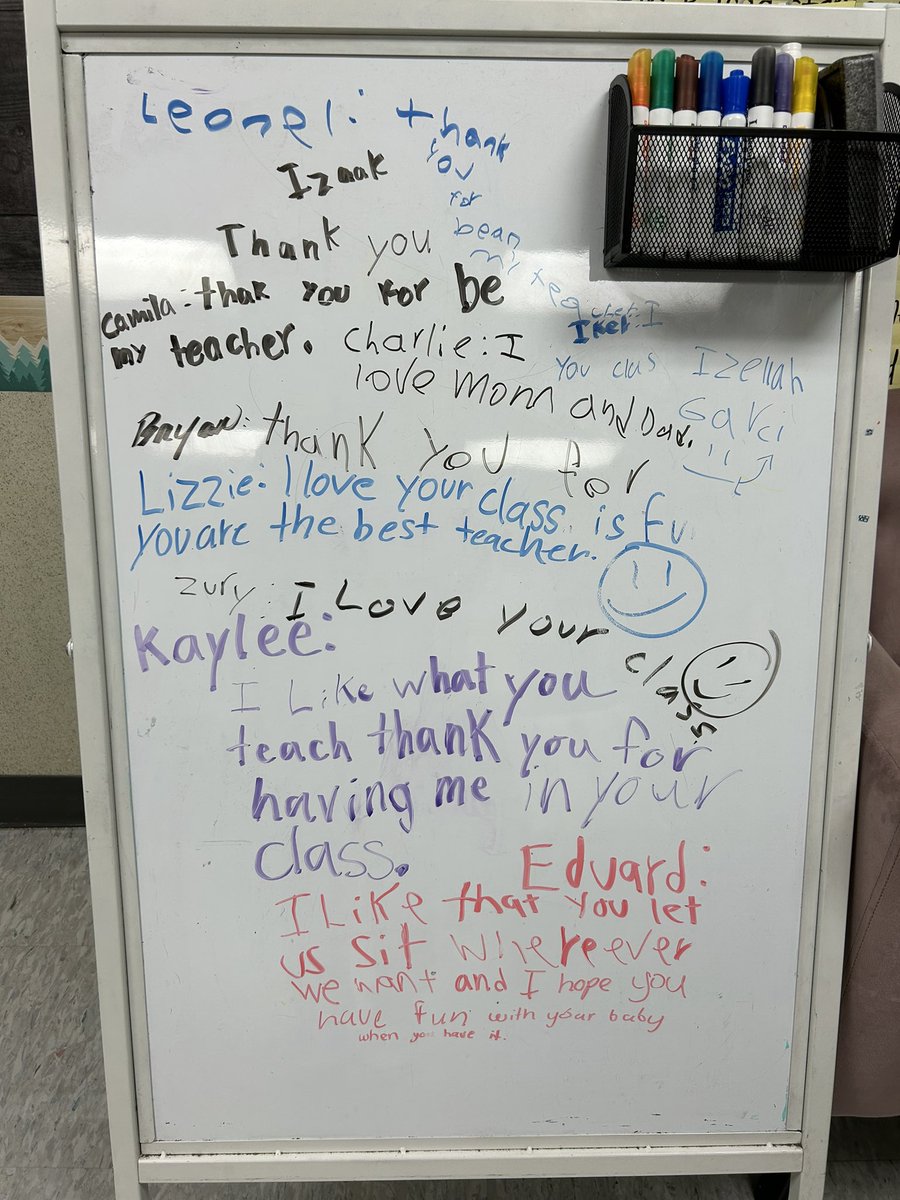 Leonel: thank
you
for
bean
my
teacher
Izaak
Thank you
Camila: thak you for be
my teacher.
Iker: I
you clas
Charlie: I
love mom and Dad.
Izellah
Garci
Bryan: thank you for
Lizzie: I love your class is fu
you are the best teacher.
Zury: I Love your class.
Kaylee:
I Like what you
teach thank you for
having me in your
class.
Eduard:
I Like that you let
us sit whereever
we want and I hope you
have fun with your baby
when you have it.